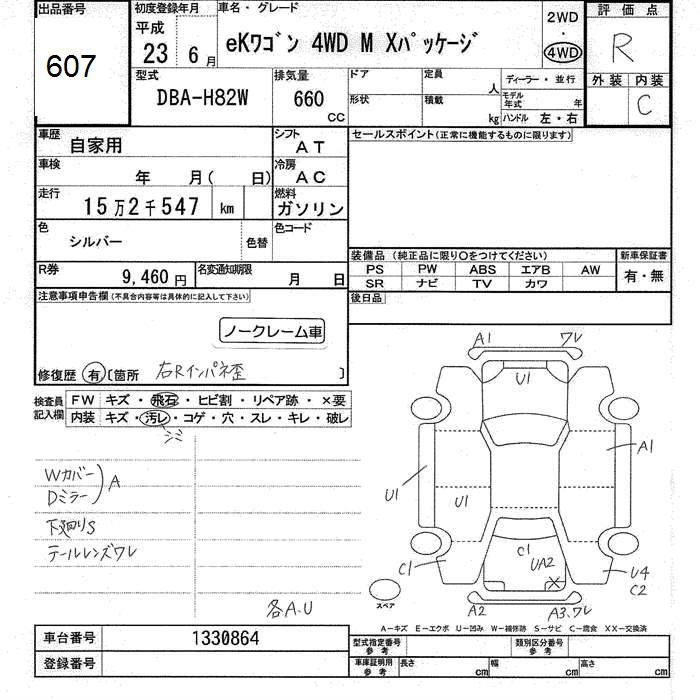 出品番号
607
初度登録年月
平成
23 6月
車名・グレード
eKワゴン 4WD M Xパッケージ
2WD
・
4WD
評価点
R
外装 内装
C
型式
DBA-H82W
排気量
660
CC
ドア
形状
定員
人
積載
kg
ディーラー・並行
モデル年式 年
ハンドル 左・右
車歴
自家用
シフト
AT
車検
年 月( 日)
冷房
AC
走行
15万2千547 km
燃料
ガソリン
色
シルバー
色替
色コード
R券
9,460円
名変通知期限
月 日
セールスポイント(正常に機能するものに限ります)
装備品 (純正品に限り○をつけてください)
PS PW ABS エアB AW
SR ナビ TV カワ
新車保証書
有・無
後日品
注意事項申告欄(不具合内容等は具体的に記入して下さい)
ノークレーム車
修復歴 有 [箇所 右Rインパネ歪 ]
検査員記入欄
FW キズ・飛石・ヒビ割・リペア跡・×要
内装 キズ・汚レ・コゲ・穴・スレ・キレ・破レ
シミ
Wカバー
Dミラー
A
下廻りS
テールレンズワレ
各A.U
A1 ワレ
U1
A1
U1
U1
C1
UA2
C1
U4
C2
A2
A3.ワレ
スペア
A－キズ E－エクボ U－凹み W－補修跡 S－サビ C－腐食 XX－交換済
車台番号
1330864
登録番号
型式指定番号
参考
類別区分番号
参考
車庫証明用
参考
長さ cm
幅 cm
高さ cm